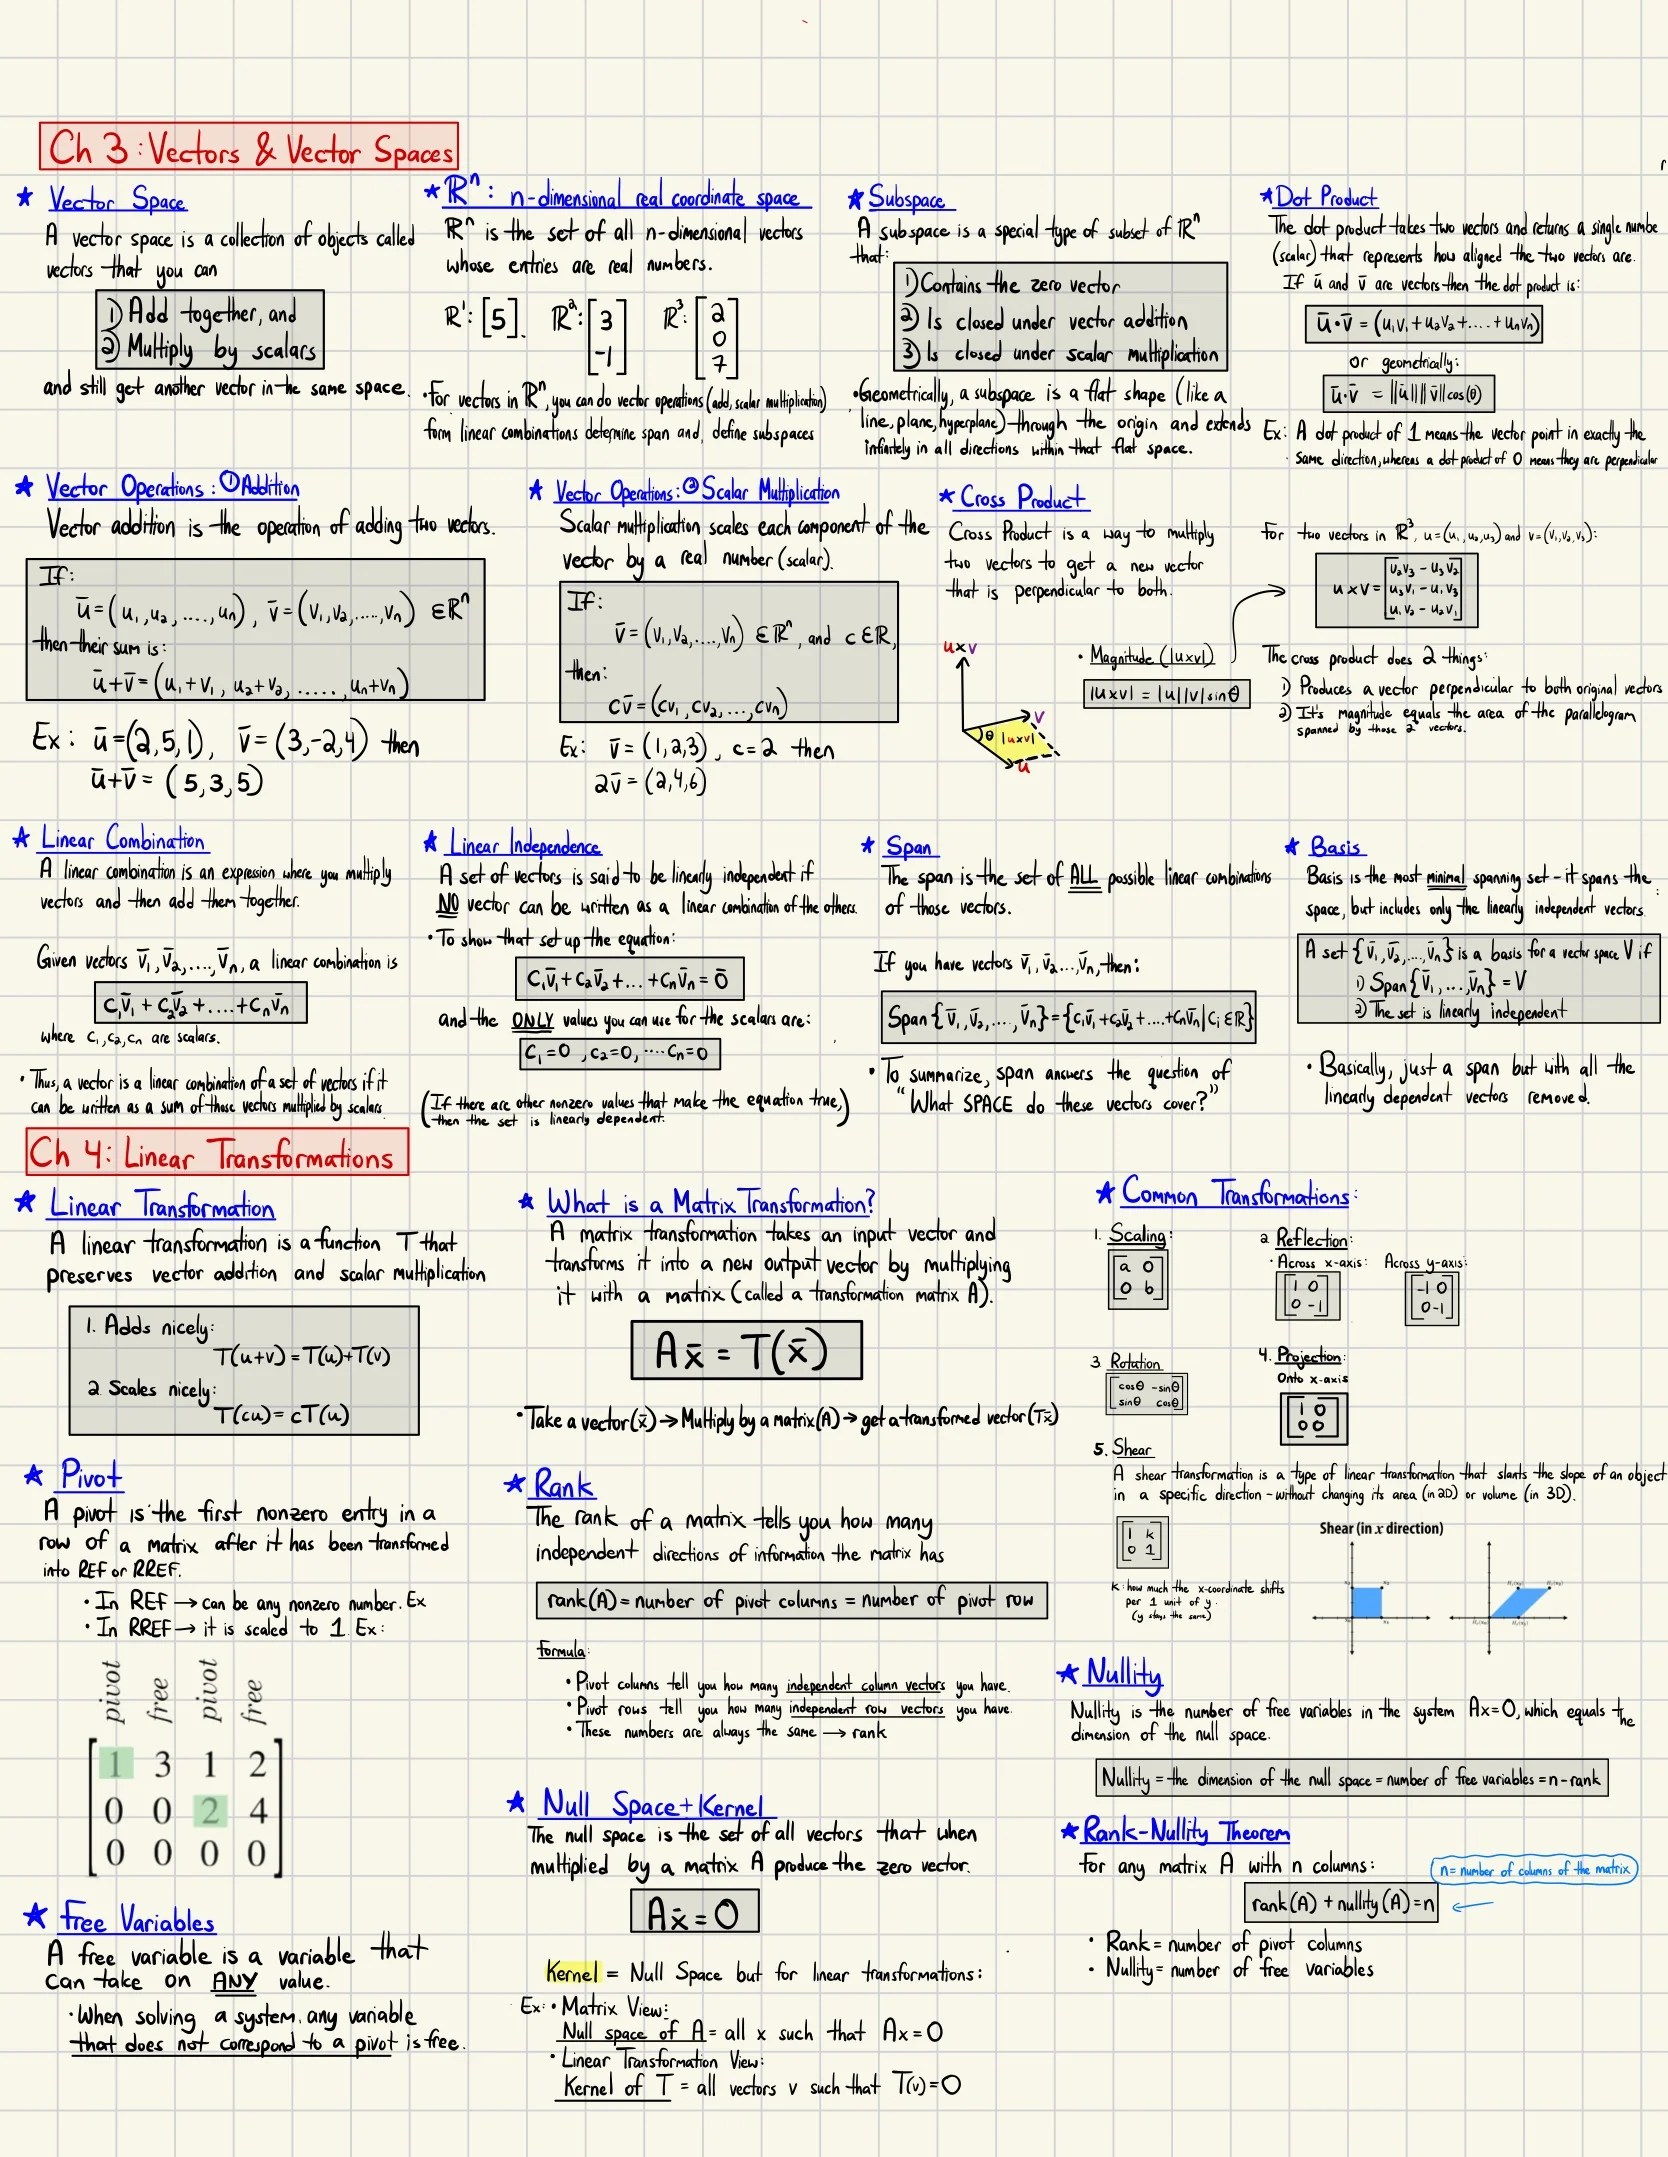 Ch 3: Vectors & Vector Spaces
★ Vector Space
A vector space is a collection of objects called
vectors that you can
1) Add together, and
2) Multiply by scalars
and still get another vector in the same space.
★ ℝⁿ: n-dimensional real coordinate space
ℝⁿ is the set of all n-dimensional vectors
whose entries are real numbers.
ℝ¹: [5]. ℝ²: [3 -1] ℝ³: [2 0 7]
• For vectors in ℝⁿ, you can do vector operations (add, scalar multiplication)
form linear combinations determine span and, define subspaces
★ Subspace
A subspace is a special type of subset of ℝⁿ
that:
1) Contains the zero vector
2) Is closed under vector addition
3) Is closed under scalar multiplication
• Geometrically, a subspace is a flat shape (like a
line, plane, hyperplane) through the origin and extends
infinitely in all directions within that flat space.
★ Dot Product
The dot product takes two vectors and returns a single numbe
(scalar) that represents how aligned the two vectors are.
If ū and v̄ are vectors then the dot product is:
ū·v̄ = (u₁v₁+u₂v₂+....+uₙvₙ)
or geometrically:
ū·v̄ = ||ū|| ||v̄|| cos(θ)
Ex: A dot product of 1 means the vector point in exactly the
same direction, whereas a dot product of 0 means they are perpendicular
★ Vector Operations: ① Addition
Vector addition is the operation of adding two vectors.
If:
ū=(u₁,u₂,....,uₙ), v̄=(v₁,v₂,.....,vₙ) ∈ℝⁿ
then their sum is:
ū+v̄=(u₁+v₁, u₂+v₂, ....., uₙ+vₙ)
Ex: ū=(2,5,1), v̄=(3,-2,4) then
ū+v̄= (5,3,5)
★ Vector Operations: ② Scalar Multiplication
Scalar multiplication scales each component of the
vector by a real number (scalar).
If:
v̄=(v₁,v₂,....,vₙ) ∈ℝⁿ, and c∈ℝ,
then:
cv̄=(cv₁,cv₂,...,cvₙ)
Ex: v̄=(1,2,3), c=2 then
2v̄=(2,4,6)
★ Cross Product
Cross Product is a way to multiply
two vectors to get a new vector
that is perpendicular to both.
u×v
v
θ |u×v|
u
• Magnitude (|u×v|)
|u×v| = |u||v|sinθ
For two vectors in ℝ³, u=(u₁,u₂,u₃) and v=(v₁,v₂,v₃):
u×v= [v₂v₃ - u₃v₂
u₃v₁ - u₁v₃
u₁v₂ - u₂v₁]
The cross product does 2 things:
1) Produces a vector perpendicular to both original vectors
2) It's magnitude equals the area of the parallelogram
spanned by those 2 vectors.
★ Linear Combination
A linear combination is an expression where you multiply
vectors and then add them together.
Given vectors v̄₁,v̄₂,....,v̄ₙ, a linear combination is
c₁v̄₁ + c₂v̄₂ +....+cₙv̄ₙ
where c₁,c₂,cₙ are scalars.
• Thus, a vector is a linear combination of a set of vectors if it
can be written as a sum of those vectors multiplied by scalars.
★ Linear Independence
A set of vectors is said to be linearly independent if
NO vector can be written as a linear combination of the others.
• To show that set up the equation:
c₁v̄₁+c₂v̄₂+...+cₙv̄ₙ=0̄
and the ONLY values you can use for the scalars are:
c₁=0, c₂=0, ....cₙ=0
(If there are other nonzero values that make the equation true,)
then the set is linearly dependent.
★ Span
The span is the set of ALL possible linear combinations
of those vectors.
If you have vectors v̄₁,v̄₂...,v̄ₙ, then:
Span{v̄₁,v̄₂,....,v̄ₙ}={c₁v̄₁+c₂v̄₂+....+cₙv̄ₙ|cᵢ∈ℝ}
• To summarize, span answers the question of
"What SPACE do these vectors cover?"
★ Basis
Basis is the most minimal spanning set - it spans the
space, but includes only the linearly independent vectors.
A set {v̄₁,v̄₂,...,v̄ₙ} is a basis for a vector space V if
1) Span{v̄₁,...,v̄ₙ} = V
2) The set is linearly independent
• Basically, just a span but with all the
linearly dependent vectors removed.
Ch 4: Linear Transformations
★ Linear Transformation
A linear transformation is a function T that
preserves vector addition and scalar multiplication
1. Adds nicely:
T(u+v)=T(u)+T(v)
2. Scales nicely:
T(cu)=cT(u)
★ What is a Matrix Transformation?
A matrix transformation takes an input vector and
transforms it into a new output vector by multiplying
it with a matrix (called a transformation matrix A).
Ax̄ = T(x̄)
• Take a vector(x̄) → Multiply by a matrix(A) → get a transformed vector(Tx̄)
★ Common Transformations:
1. Scaling:
[a 0
0 b]
2 Reflection:
• Across x-axis: Across y-axis:
[1 0 [-1 0
0 -1] 0 -1]
3 Rotation
[cosθ -sinθ
sinθ cosθ]
4. Projection:
Onto x-axis
[1 0
0 0]
5. Shear
A shear transformation is a type of linear transformation that slants the slope of an object
in a specific direction - without changing its area (in 2D) or volume (in 3D).
[1 k
0 1]
k: how much the x-coordinate shifts
per 1 unit of y.
(y stays the same)
Shear (in x direction)
★ Pivot
A pivot is the first nonzero entry in a
row of a matrix after it has been transformed
into REF or RREF.
• In REF → can be any nonzero number. Ex
• In RREF → it is scaled to 1. Ex:
pivot free pivot free
1 3 1 2
0 0 2 4
0 0 0 0
★ Rank
The rank of a matrix tells you how many
independent directions of information the matrix has
rank(A)=number of pivot columns = number of pivot row
Formula:
• Pivot columns tell you how many independent column vectors you have.
• Pivot rows tell you how many independent row vectors you have.
• These numbers are always the same → rank
★ Nullity
Nullity is the number of free variables in the system Ax=0, which equals the
dimension of the null space.
Nullity = the dimension of the null space = number of free variables = n-rank
★ Null Space+Kernel
The null space is the set of all vectors that when
multiplied by a matrix A produce the zero vector.
Ax̄=0
Kernel = Null Space but for linear transformations:
Ex: • Matrix View:
Null space of A = all x such that Ax=0
• Linear Transformation View:
Kernel of T = all vectors v such that T(v)=0
★ Rank-Nullity Theorem
For any matrix A with n columns:
n=number of columns of the matrix
rank(A) + nullity(A)=n
• Rank= number of pivot columns
• Nullity= number of free variables
★ Free Variables
A free variable is a variable that
can take on ANY value.
• When solving a system, any variable
that does not correspond to a pivot is free.